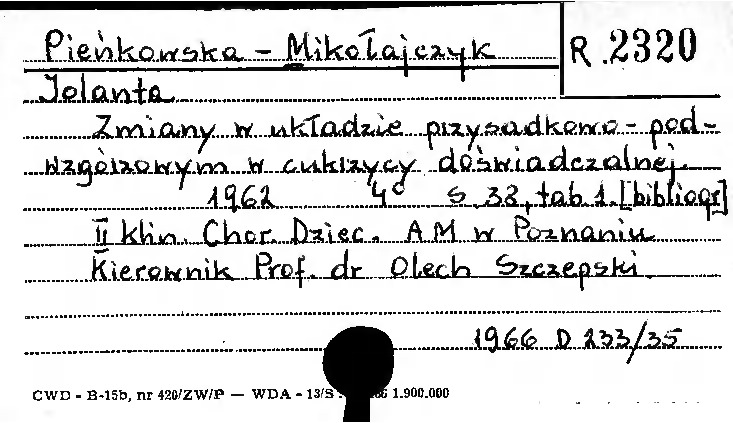 Pieńkowska - Mikołajczyk R. 2320
Jolanta
Zmiany w układzie przysadkowo - pod-
wzgórzowym w cukrzycy doświadczalnej.
1962 4° s. 38, tab. 1. [bibliogr]
II klin. Chor. Dziec. AM w Poznaniu
Kierownik Prof. dr Olech Szczepski.
1966 D 233/35
CWD - B-15b, nr 420/ZW/P — WDA - 13/S 1.900.000